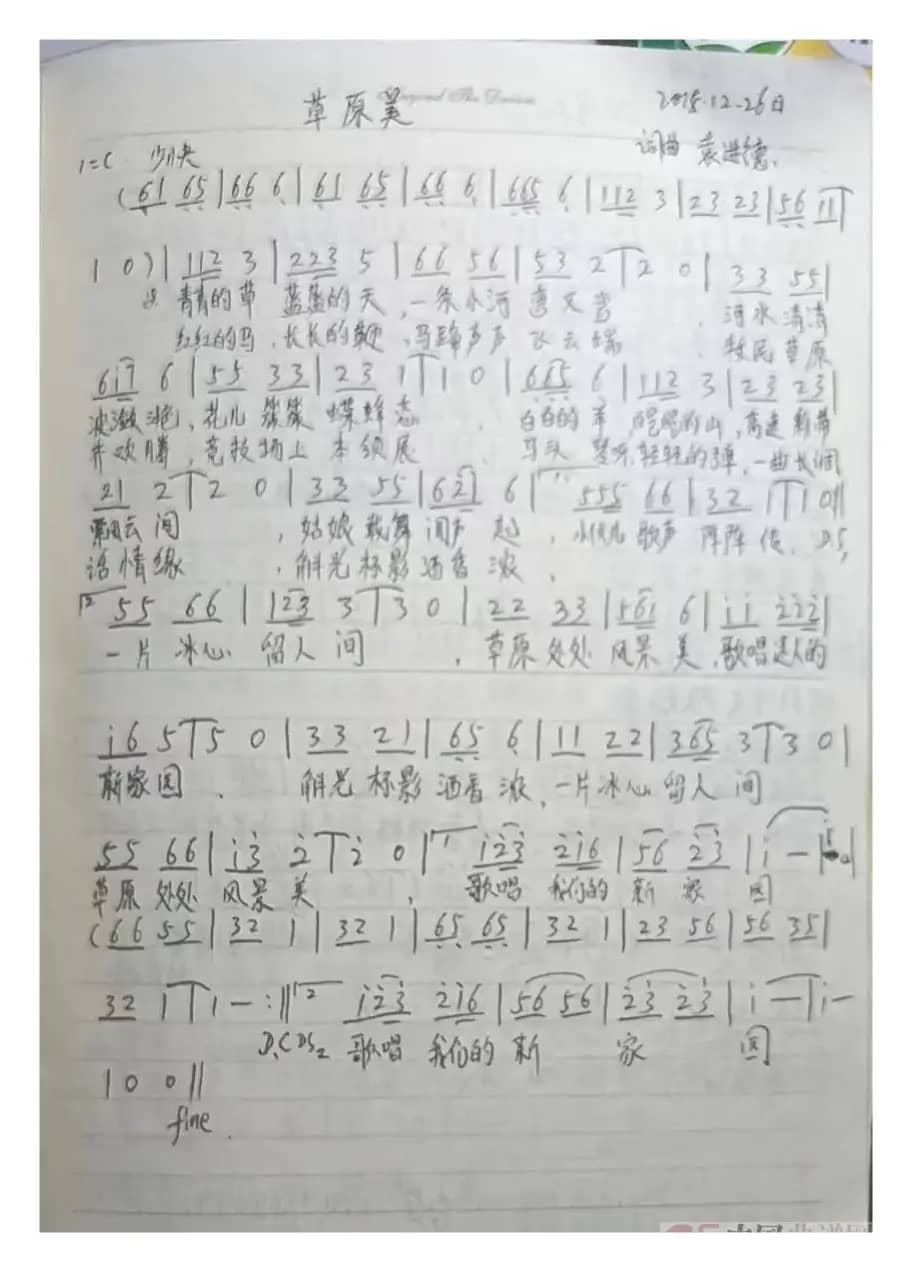 草原美
2015.12.26日
1=C 少快
词曲 袁进德.
(61 65|66 6|61 65|66 6|665 6|112 3|23 23|56 11|
1 0)|112 3|223 5|66 56|53 2|2 0|33 55|
青青的草 蓝蓝的天,一条小河 弯又弯 , 河水清清
红红的马,长长的鞭,马蹄声声 飞云端 牧民草原
6i7 6|55 33|23 1|1 0|665 6|112 3|23 23|
花儿 蝶蜂恋 , 白白的羊, 的山,高速
齐欢腾,竞技场上 本领展 , 马头 琴 轻轻的弹,一曲长调
21 2|2 0|33 55|621 6|1 555 66|32 1|1 0||
云间 ,姑娘载舞 声起, 歌声 阵阵传. D.S,
话情缘 ,斛光杯影 洒香浓,
12 55 66|123 3|3 0|22 33|561 6|ii 222|
一片 冰心 留人间 ,草原处处 风景美,歌唱 的
i6 5|5 0|33 21|65 6|11 22|365 3|3 0|
新家园 . 斛光杯影 洒香浓,一片冰心 留人间
55 66|i3 2|2 0|1 i23 2i6|56 23|i -|
草原 处处 风景美 , 歌唱 我们的 新 家 园
(66 55|32 1|32 1|65 65|32 1|23 56|56 35|
32 1|1 -:||12 i23 2i6|56 56|23 23|i -|i -
D.C DS2 歌唱 我们的 新 家 园
1 0 0||
fine.